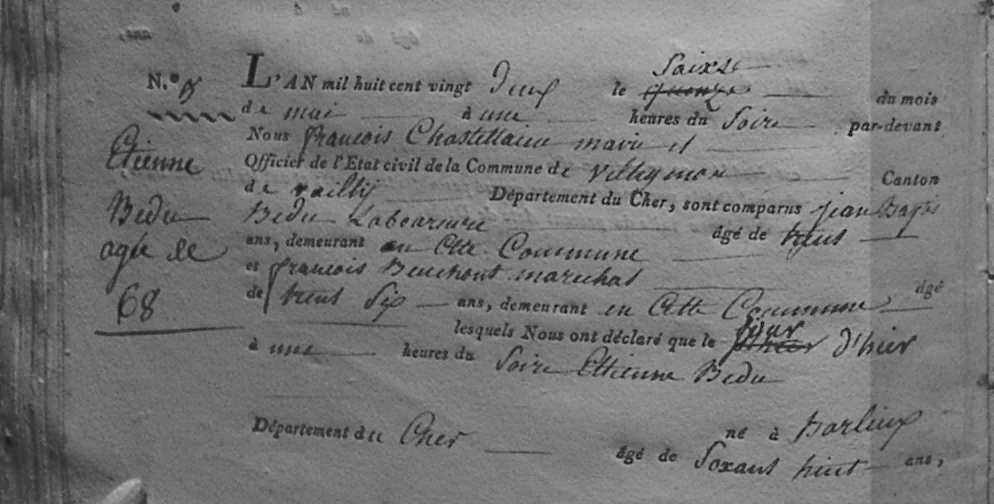 N.º 5
Etienne
Bedu
agé de
68
L'AN mil huit cent vingt Deux le Saixse quenze du mois
de mai à une heures du Soire par-devant
Nous francois Chastellain maire et
Officier de l'Etat civil de la Commune de Villegenon Canton
de vailly Département du Cher, sont comparus jean Baptis
Bedu Laboureure âgé de trent
ans, demeurant en Cette Commune
et francois Beuchont marechal âgé
de trent Six ans, demeurant en Cette Commune
lesquels Nous ont déclaré que le jour d'hier
à une heures du Soire Ettienne Bedu
Département du Cher né à Barlieux
âgé de Soxant huit ans,